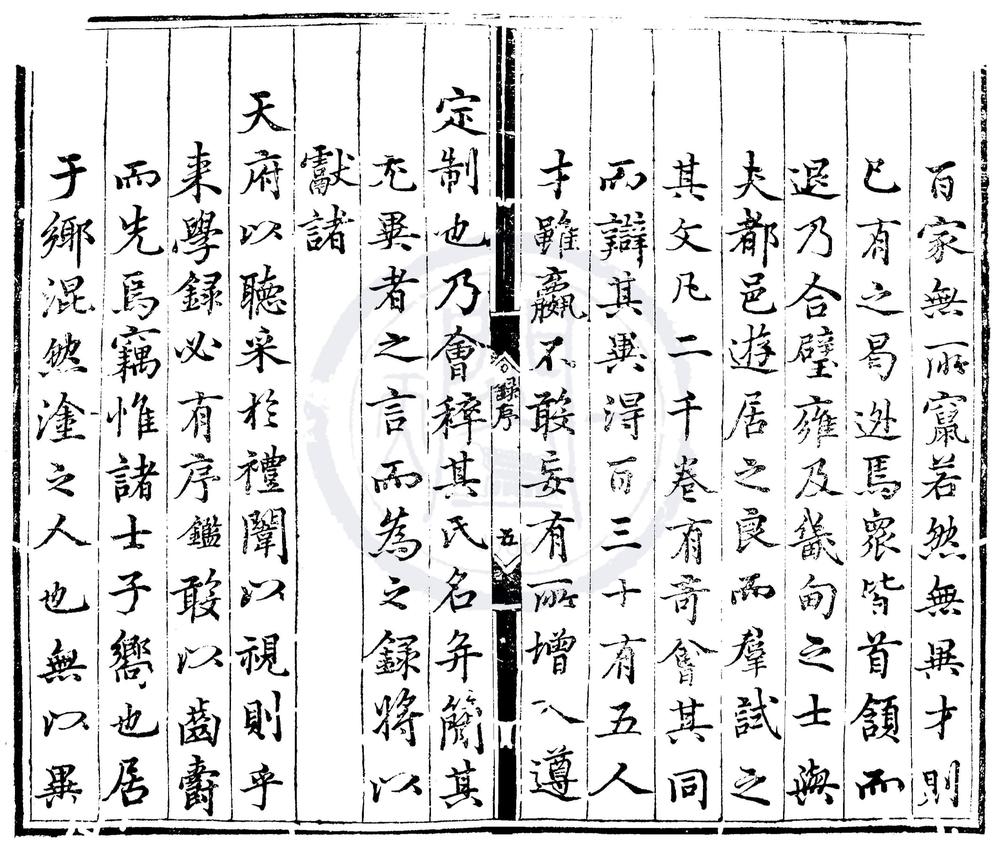 百家無所窺若然無異才則
已有之曷逊焉衆皆首頷而
退乃合璧雍及畿甸之士與
夫都邑遊居之良而羣試之
其文凡二千卷有奇會其同
而辯其異得百三十有五人
才雖羸不敢妄有所增以遵
定制也乃會稡其氏名弁簡其
尤異者之言而為之錄將以
獻諸
天府以聽采於禮闈以視則乎
来學録必有序鑑敢以齒齎
而先焉竊惟諸士子嚮也居
于鄉混然塗之人也無以異
録序
五